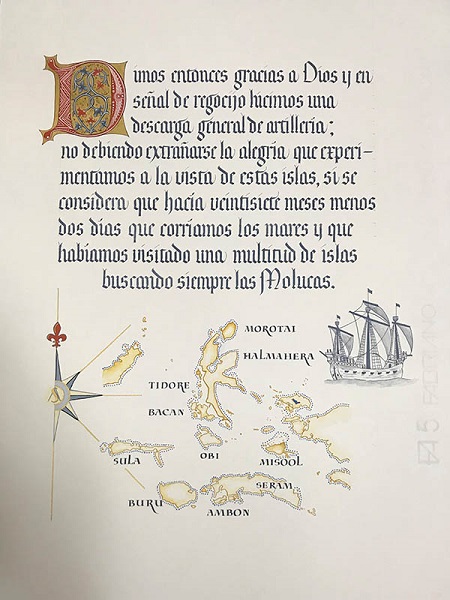 Dimos entonces gracias a Dios y en
señal de regocijo hicimos una
descarga general de artillería;
no debiendo extrañarse la alegría que experi-
mentamos a la vista de estas islas, si se
considera que hacía veintisiete meses menos
dos días que corríamos los mares y que
habíamos visitado una multitud de islas
buscando siempre las Molucas.
MOROTAI
HALMAHERA
TIDORE
BACAN
OBI
SULA
MISOOL
SERAM
BURU
AMBON
5 FABRIANO